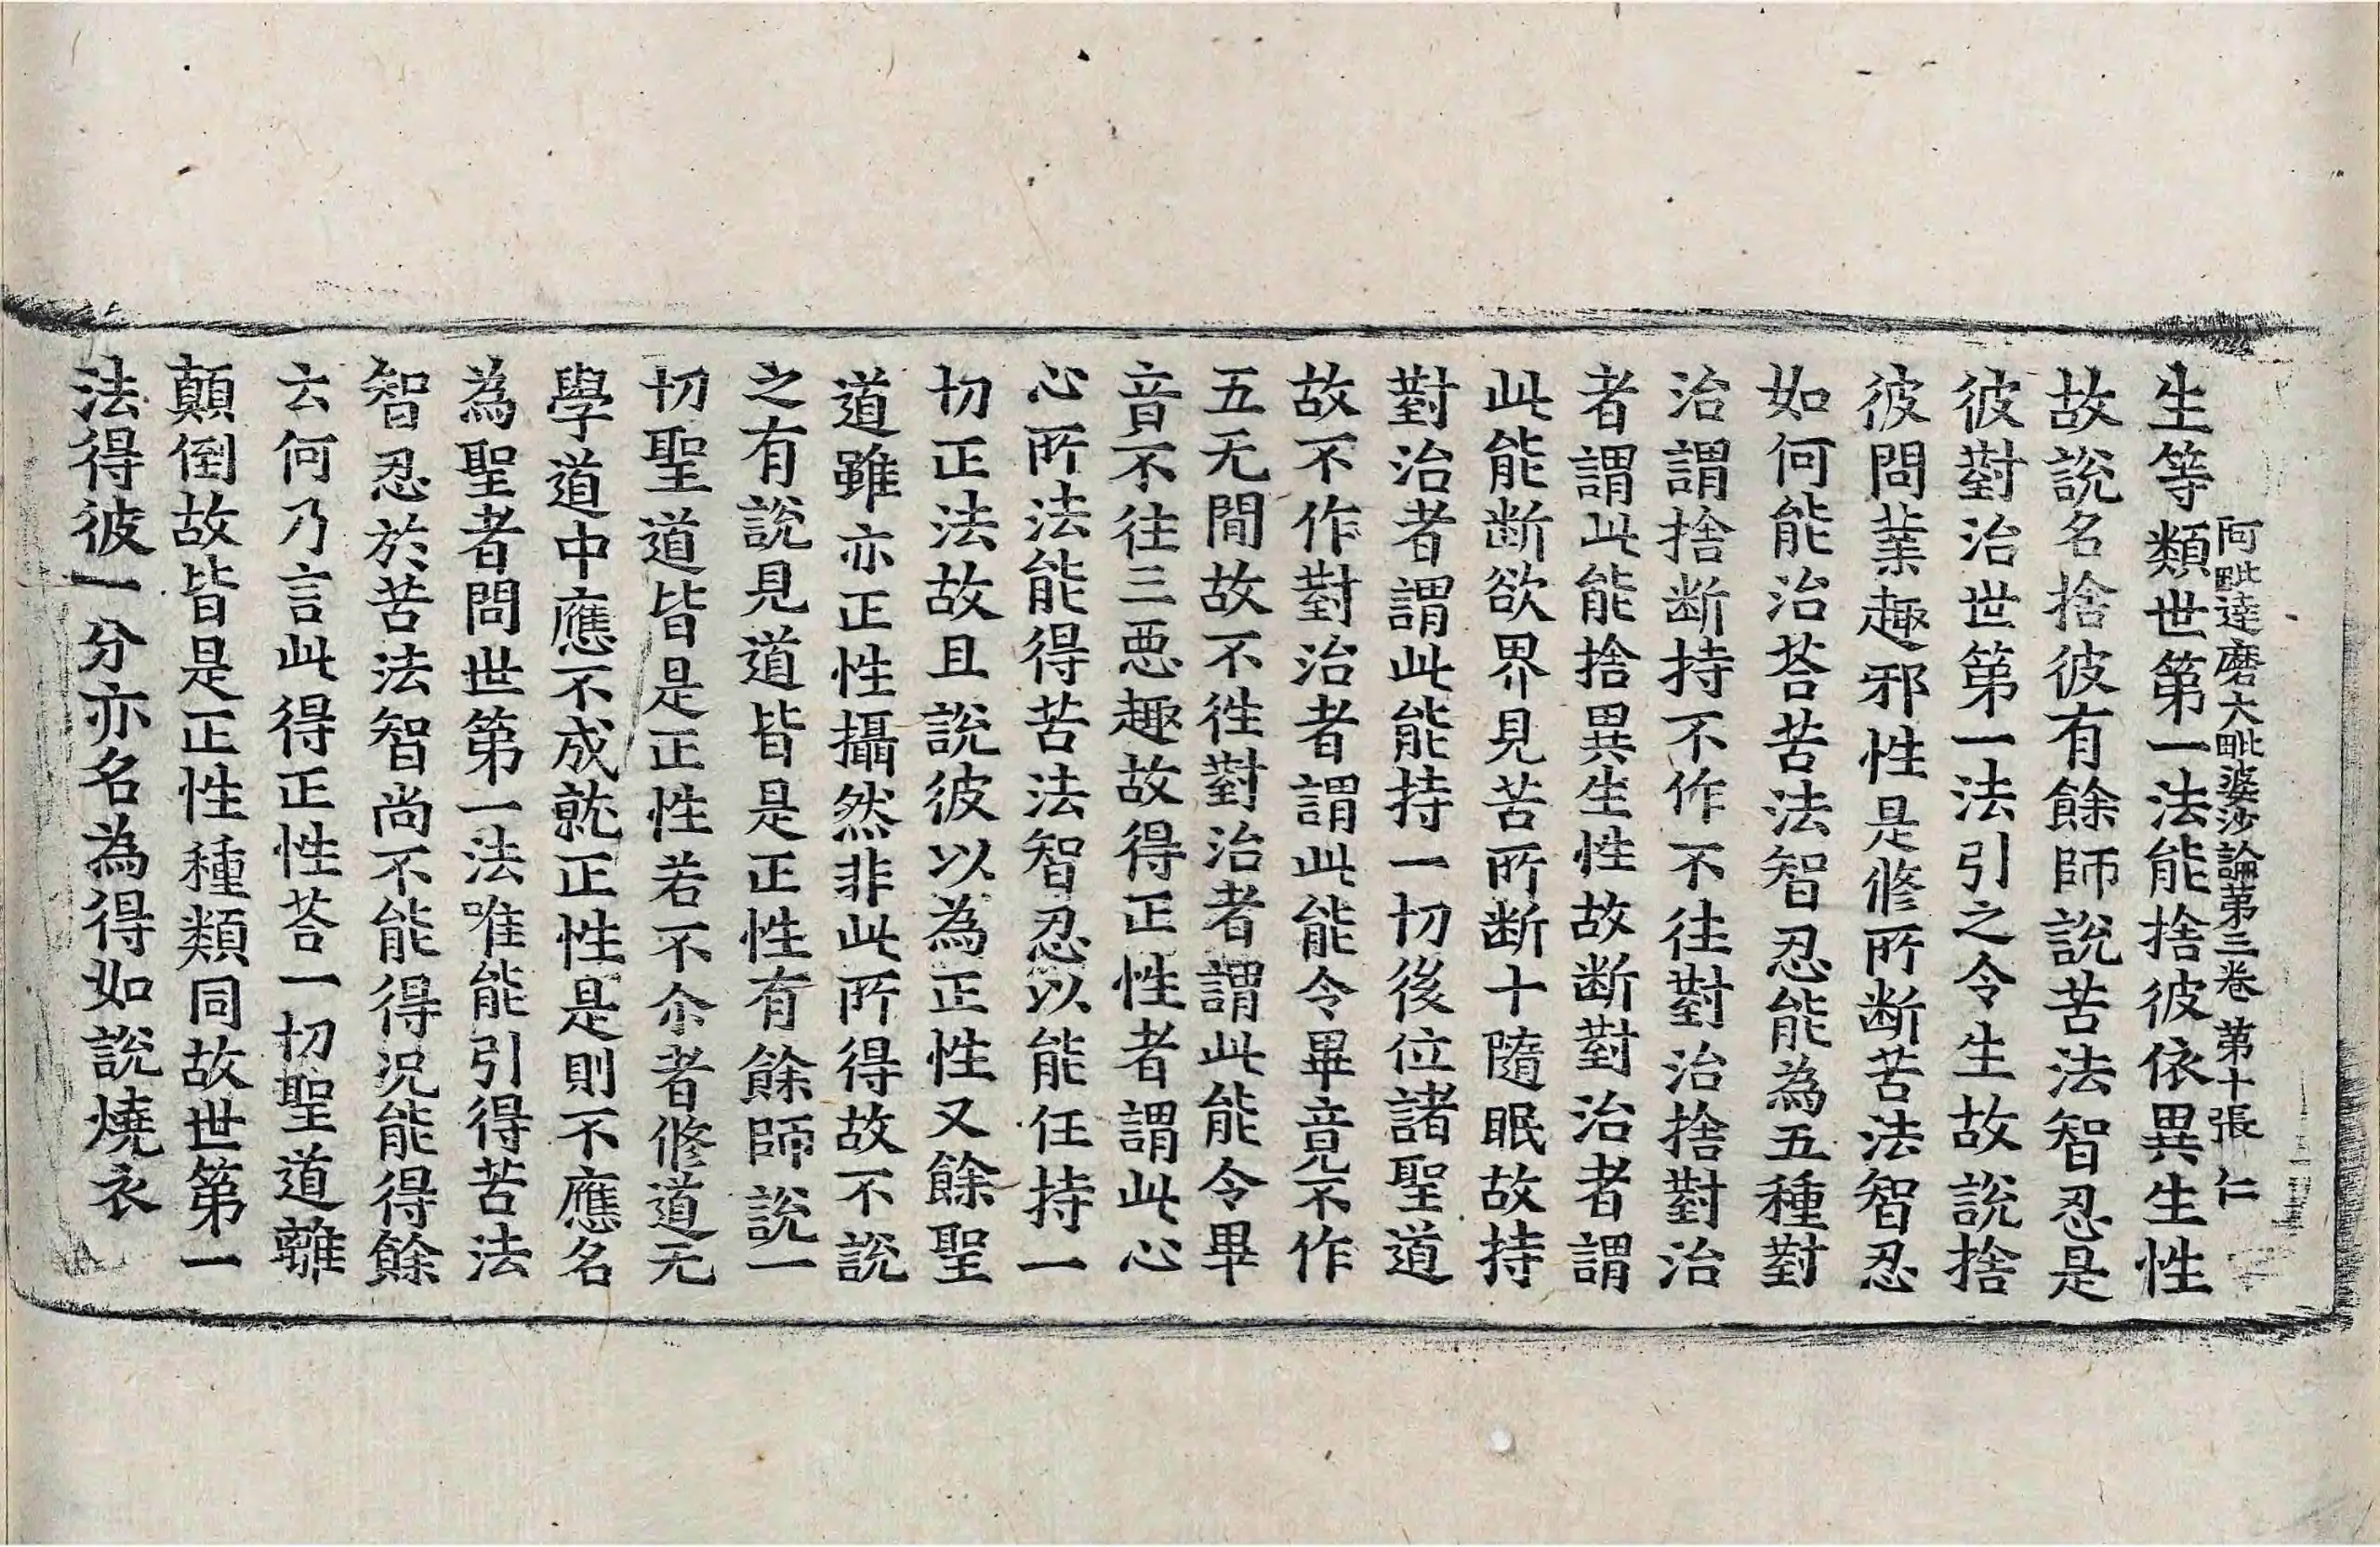 阿毗達磨大毗婆沙論第三卷 第十張 仁
生等類世第一法能捨彼依異生性
故說名捨彼有餘師說苦法智忍是
彼對治世第一法引之令生故說捨
彼問業趣邪性是修所断苦法智忍
如何能治荅苦法智忍能為五種對
治謂捨断持不作不往對治捨對治
者謂此能捨異生性故断對治者謂
此能断欲界見苦所断十隨眠故持
對治者謂此能持一切後位諸聖道
故不作對治者謂此能令畢竟不作
五无間故不徃對治者謂此能令畢
音不往三惡趣故得正性者謂此心
心所法能得苦法智忍以能任持一
切正法故且說彼以為正性又餘聖
道雖亦正性攝然非此所得故不說
之有說見道皆是正性有餘師說一
切聖道皆是正性若不尒者修道无
學道中應不成就正性是則不應名
為聖者問世第一法唯能引得苦法
智忍於苦法智尚不能得況能得餘
云何乃言此得正性荅一切聖道離
顛倒故皆是正性種類同故世第一
法得彼一分亦名為得如說燒衣